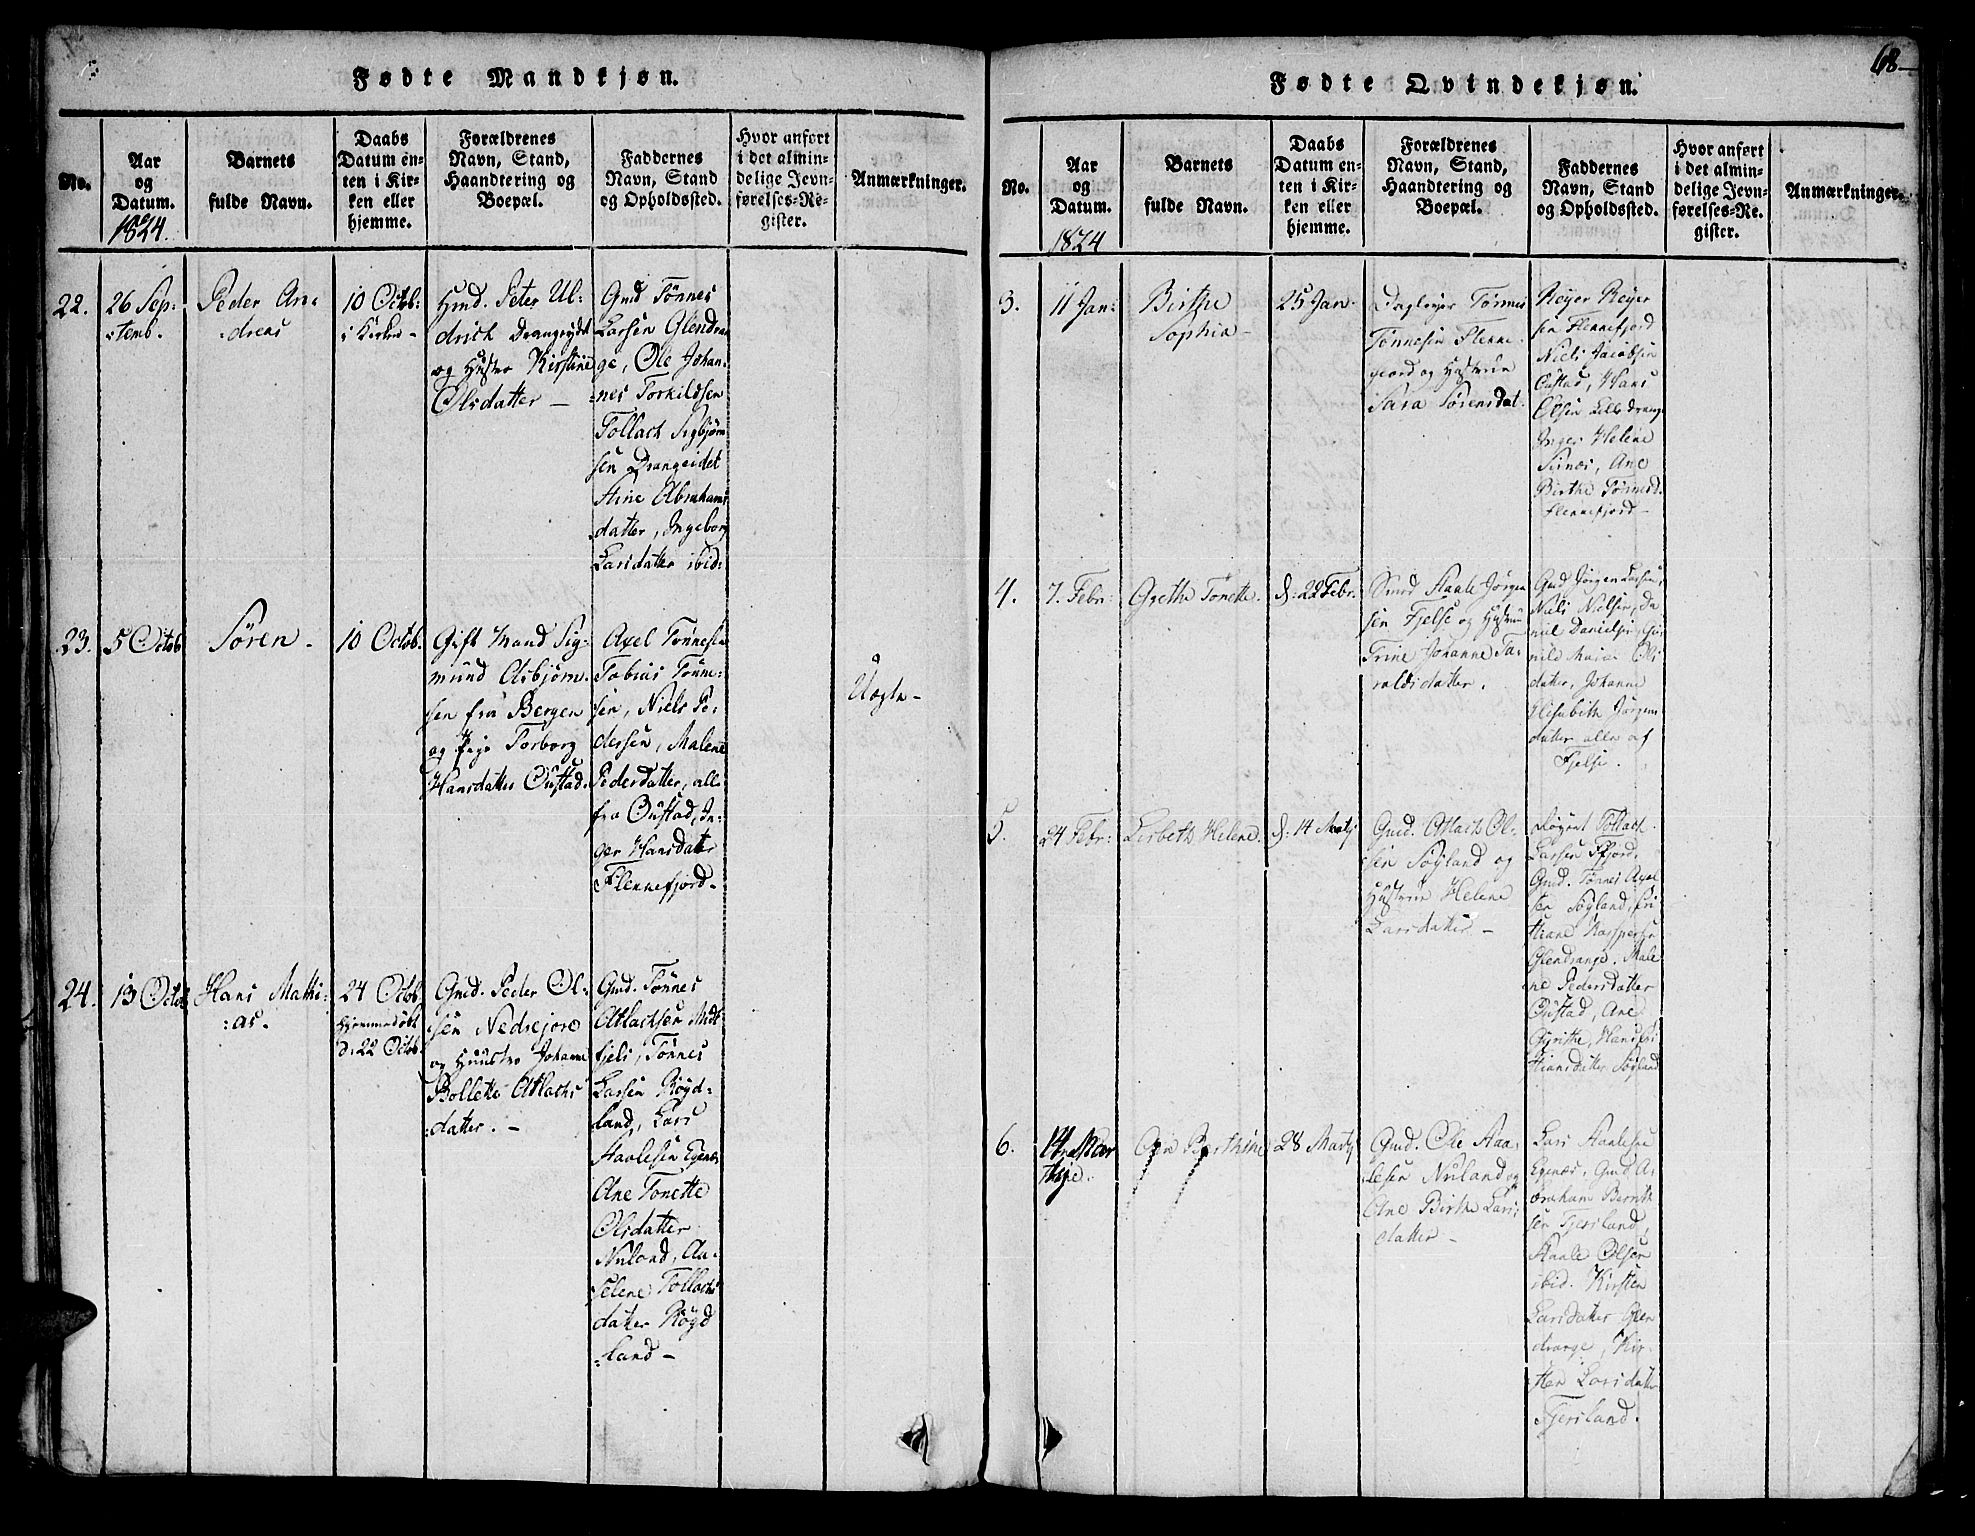 Fødte Mandkjøn.
No.
Aar
og
Datum.
1824.
Barnets
fulde Navn.
Daabs
Datum en-
ten i Kir-
ken eller
hjemme.
Forældrenes
Navn, Stand,
Haandtering og
Boepæl.
Faddernes
Navn, Stand
og Opholdssted.
Hvor anført
i det almin-
delige Jevn-
førelses-Re-
gister.
Anmærkninger.
22.
26 Sep:
temb.
Peder An:
dreas
10 Octob:
i Kirken -
Gmd. Peter Ul-
drich Drangeydet
og Hustro Kirstine
Olsdatter -
Gmd Tönnes
Larsen Glendran
ge, Ole Johan:
nes Torkildsen
Tollach Sigbjörn
sen Drangeidet
Stine Abrahams
datter, Ingeborg
Larsdatter ibid:
23.
5 Octob
Sören -
10 Octob.
Gift Mand Sig:
mund Asbjörn-
sen fra Bergen
og Pige Torborg
Hansdatter Oustad.
Axel Tönnesen
Tobias Tönne-
sen, Niels Pe-
dersen, Malene
Pedersdatter, alle
fra Oustad, In-
ger Hansdatter
Flennefjord -
Uægte -
24.
13 Octob
Hans Mathi:
:as.
24 Octob.
hjemmedöbt
d: 22 Octob.
Gmd. Peder Ol:
sen Nedrejore
og Huustro Johanne
Bollette Atlachs
datter. -
Gmd. Tönnes
Atlachsen Midt
fjels, Tönnes
Larsen Röyd-
land, Lars
Staalesen Egenes
Ane Tonette
Olsdatter
Nuland, An-
selene Tollachs
datter Röyd
land -
68
Fødte Qvindekjøn.
No.
Aar
og
Datum.
1824
Barnets
fulde Navn.
Daabs
Datum en-
ten i Kir-
ken eller
hjemme.
Forældrenes
Navn, Stand,
Haandtering og
Boepæl.
Faddernes
Navn, Stand
og Opholdssted.
Hvor anført
i det almin-
delige Jevn-
førelses-Re-
gister.
Anmærkninger.
3.
11 Jan:
Birthe
Sophia -
25 Jan.
Dagleyer Tönnes
Tönnesen Flenne-
fjord og Hustrue
Sara Sörensdat.
Reyer Reyer
sen Flennefjord
Niels Jacobsen
Oustad, Hans
Olsen Lille Drange
Inger Helene
Ane
Birthe Tönnesd.
Flennefjord -
4.
7. Febr:
Grethe Tonette.
d: 22 Febr.
Gmd Staale Jörgen
sen Fjelse og Hustrue
Trine Johanne Ta-
raldsdatter.
Gmd Jörgen Larsen,
Niels Nielsen, Da
niel Danielsen, Gu
nild Maria Ols
datter, Johanne
Elisabeth Jörgens
datter alle af
Fjelse.
5.
24 Febr:
Lisbeth Helene.
d: 14 Martj
Gmd. Atlach Ol-
sen Söyland og
Hustrue Helene
Larsdatter -
Tollach
Larsen Fjord,
Gmd. Tönnes Axel
sen Söyland, Chri
stiane Kaspersd
Glendrange, Male
ne Pedersdatter
Oustad, Ane
Gyrithe, Hans Chri
stiansdatter Söyland
6.
14 Mar
tsje.
Ane Berthine
28 Martj
Gmd. Ole Aan-
lesen Nuland og
Ane Birthe Lars:
datter -
Lars Staalesen
Egenes, Gmd A-
braham Bernth
sen Fjersland,
Staale Olsen
ibid. Kirsten
Larsdatter Glen
drange, Kir-
sten Larsdatter
Fjersland.